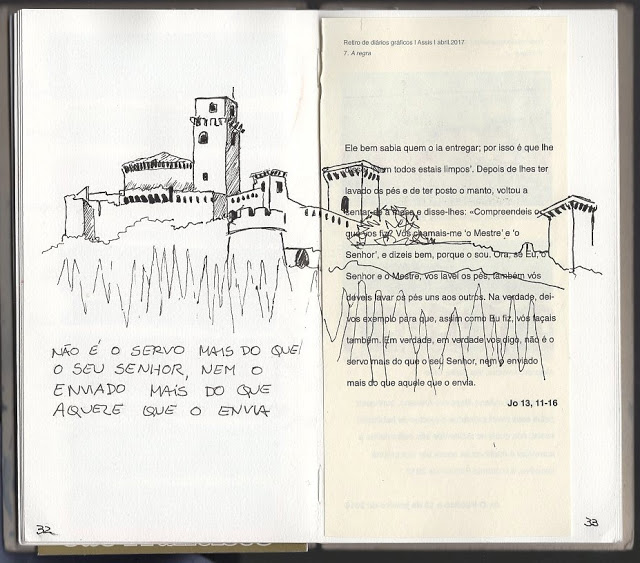 NÃO É O SERVO MAIS DO QUE
O SEU SENHOR, NEM O
ENVIADO MAIS DO QUE
AQUELE QUE O ENVIA
32
Retiro de diários gráficos I Assis I abril.2017
7. A regra
Ele bem sabia quem o ia entregar; por isso é que lhe
todos estais limpos’. Depois de lhes ter
lavado os pés e de ter posto o manto, voltou a
sentar-se à mesa e disse-lhes: «Compreendeis o
que vos fiz? Vós chamais-me ‘o Mestre’ e ‘o
Senhor’, e dizeis bem, porque o sou. Ora, se Eu, o
Senhor e o Mestre, vos lavei os pés, também vós
deveis lavar os pés uns aos outros. Na verdade, dei-
vos exemplo para que, assim como Eu fiz, vós façais
também. Em verdade, em verdade vos digo, não é o
servo mais do que o seu Senhor, nem o enviado
mais do que aquele que o envia.
Jo 13, 11-16
33